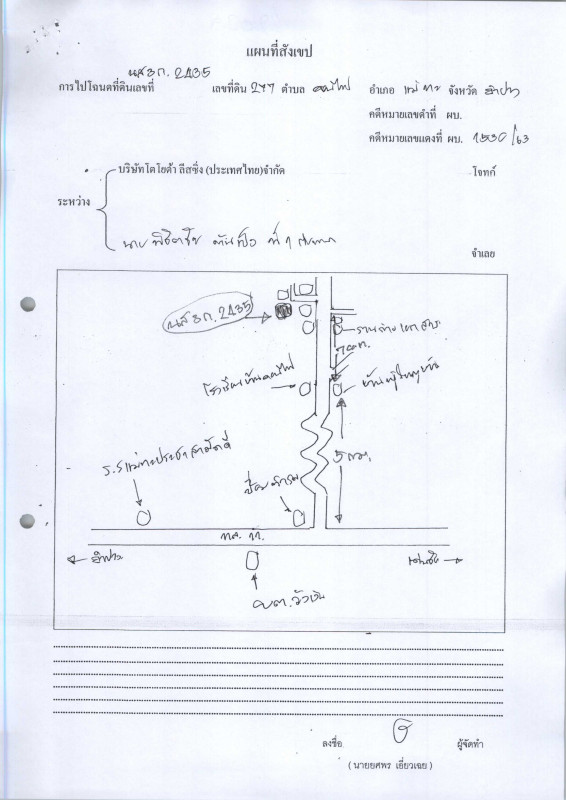 แผนที่สังเขป
นส3ก. 2435
การไปโฉนดที่ดินเลขที่ เลขที่ดิน 277 ตำบล ดอนไฟ อำเภอ แม่ทะ จังหวัด ลำปาง
คดีหมายเลขดำที่ ผบ.
คดีหมายเลขแดงที่ ผบ. 1530/63
บริษัทโตโยต้า ลีสซิ่ง (ประเทศไทย)จำกัด โจทก์
ระหว่าง
นาย จำเลย
นส3ก. 2435
โรงเรียนบ้านดอนไฟ
บ้านผู้ใหญ่บ้าน
ร.ร แม่ทะประชาสามัคคี
5 กม.
ทล. 11
ลำปาง
เด่นชัย
อบต. วังเงิน
ลงชื่อ ผู้จัดทำ
(นายยศพร เอี่ยวเฉย)